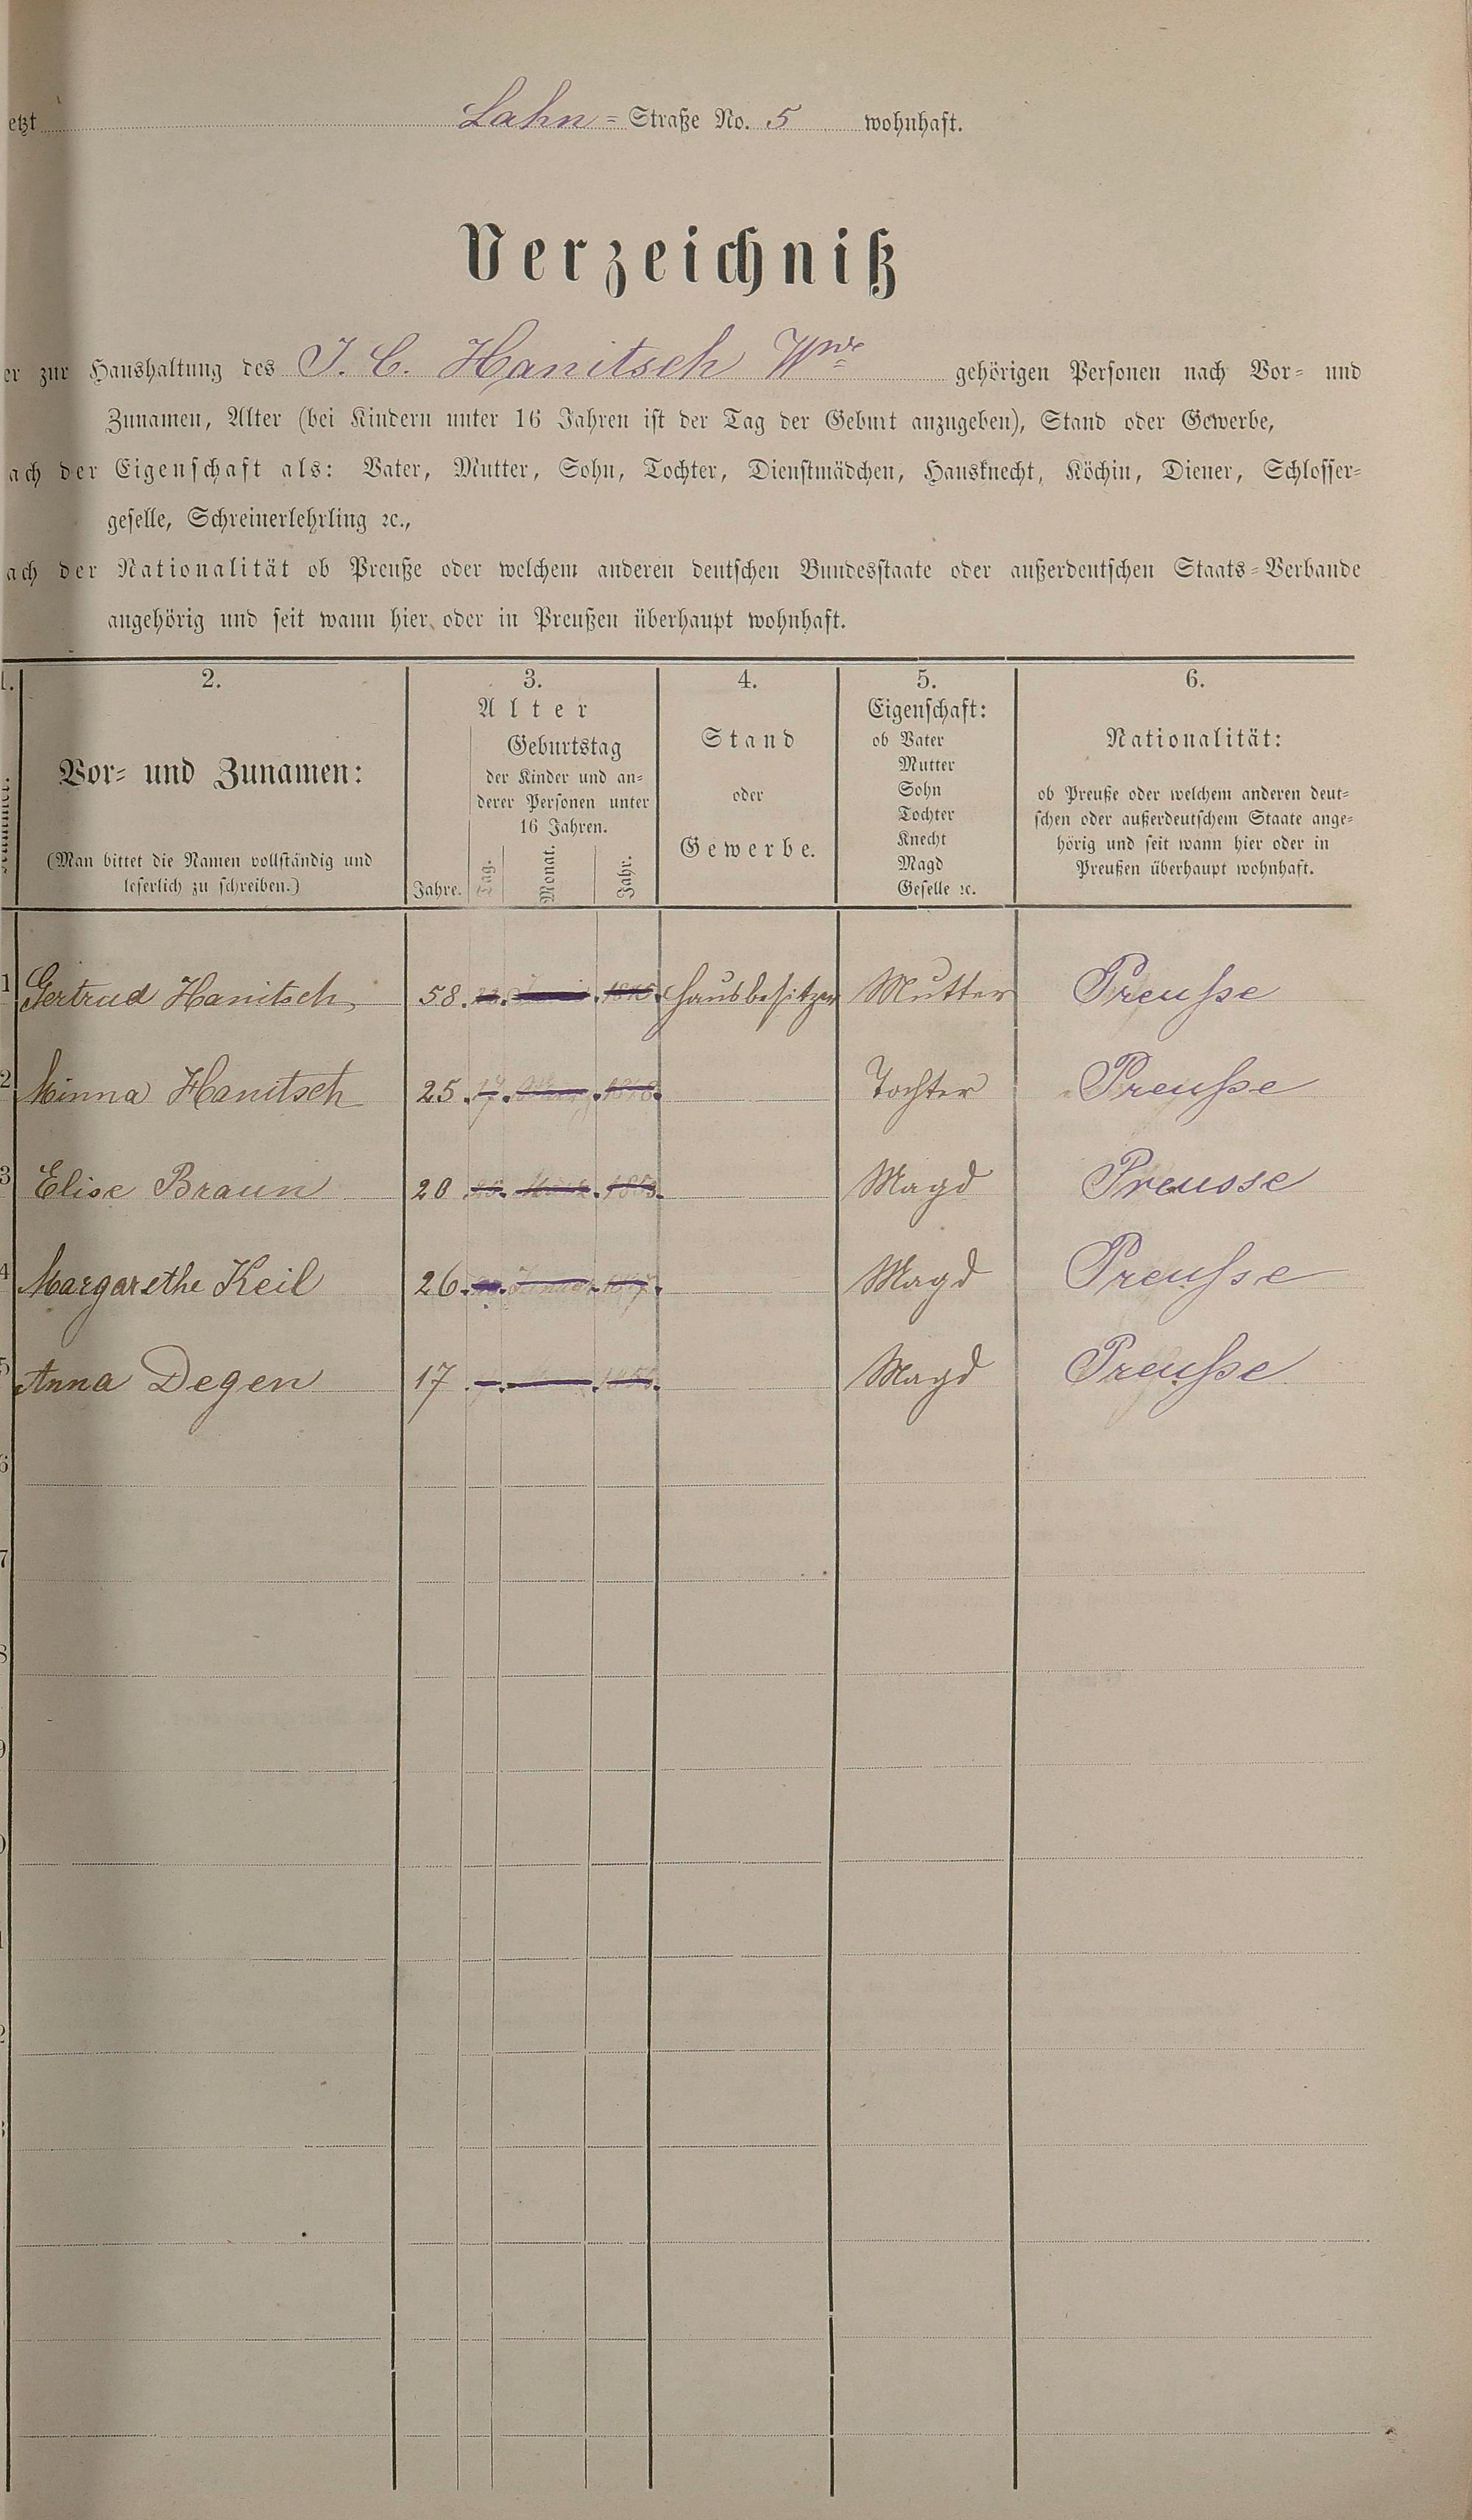 etzt Lahn = Straße No. 5 wohnhaft.
Verzeichniß
er zur Haushaltung des J. C. Hanitsch Wwe gehörigen Personen nach Vor- und
Zunamen, Alter (bei Kindern unter 16 Jahren ist der Tag der Geburt anzugeben), Stand oder Gewerbe,
ach der Eigenschaft als: Vater, Mutter, Sohn, Tochter, Dienstmädchen, Hausknecht, Köchin, Diener, Schlosser-
geselle, Schreinerlehrling ꝛc.,
ach der Nationalität ob Preuße oder welchem anderen deutschen Bundesstaate oder außerdeutschen Staats-Verbande
angehörig und seit wann hier oder in Preußen überhaupt wohnhaft.
1.
2.
Vor- und Zunamen:
(Man bittet die Namen vollständig und
leserlich zu schreiben.)
3.
Alter
Jahre.
Geburtstag
der Kinder und an-
derer Personen unter
16 Jahren.
Tag.
Monat.
Jahr.
4.
Stand
oder
Gewerbe.
5.
Eigenschaft:
ob Vater
Mutter
Sohn
Tochter
Knecht
Magd
Geselle ꝛc.
6.
Nationalität:
ob Preuße oder welchem anderen deut-
schen oder außerdeutschem Staate ange-
hörig und seit wann hier oder in
Preußen überhaupt wohnhaft.
1 Gertrud Hanitsch 58 Hausbesitzer Mutter Preusse
2 Minna Hanitsch 25 Tochter Preusse
3 Elise Braun 20 Magd Preusse
4 Margarethe Keil 26 Magd Preusse
5 Anna Degen 17 Magd Preusse
6
7
8
9
0
1
2
3